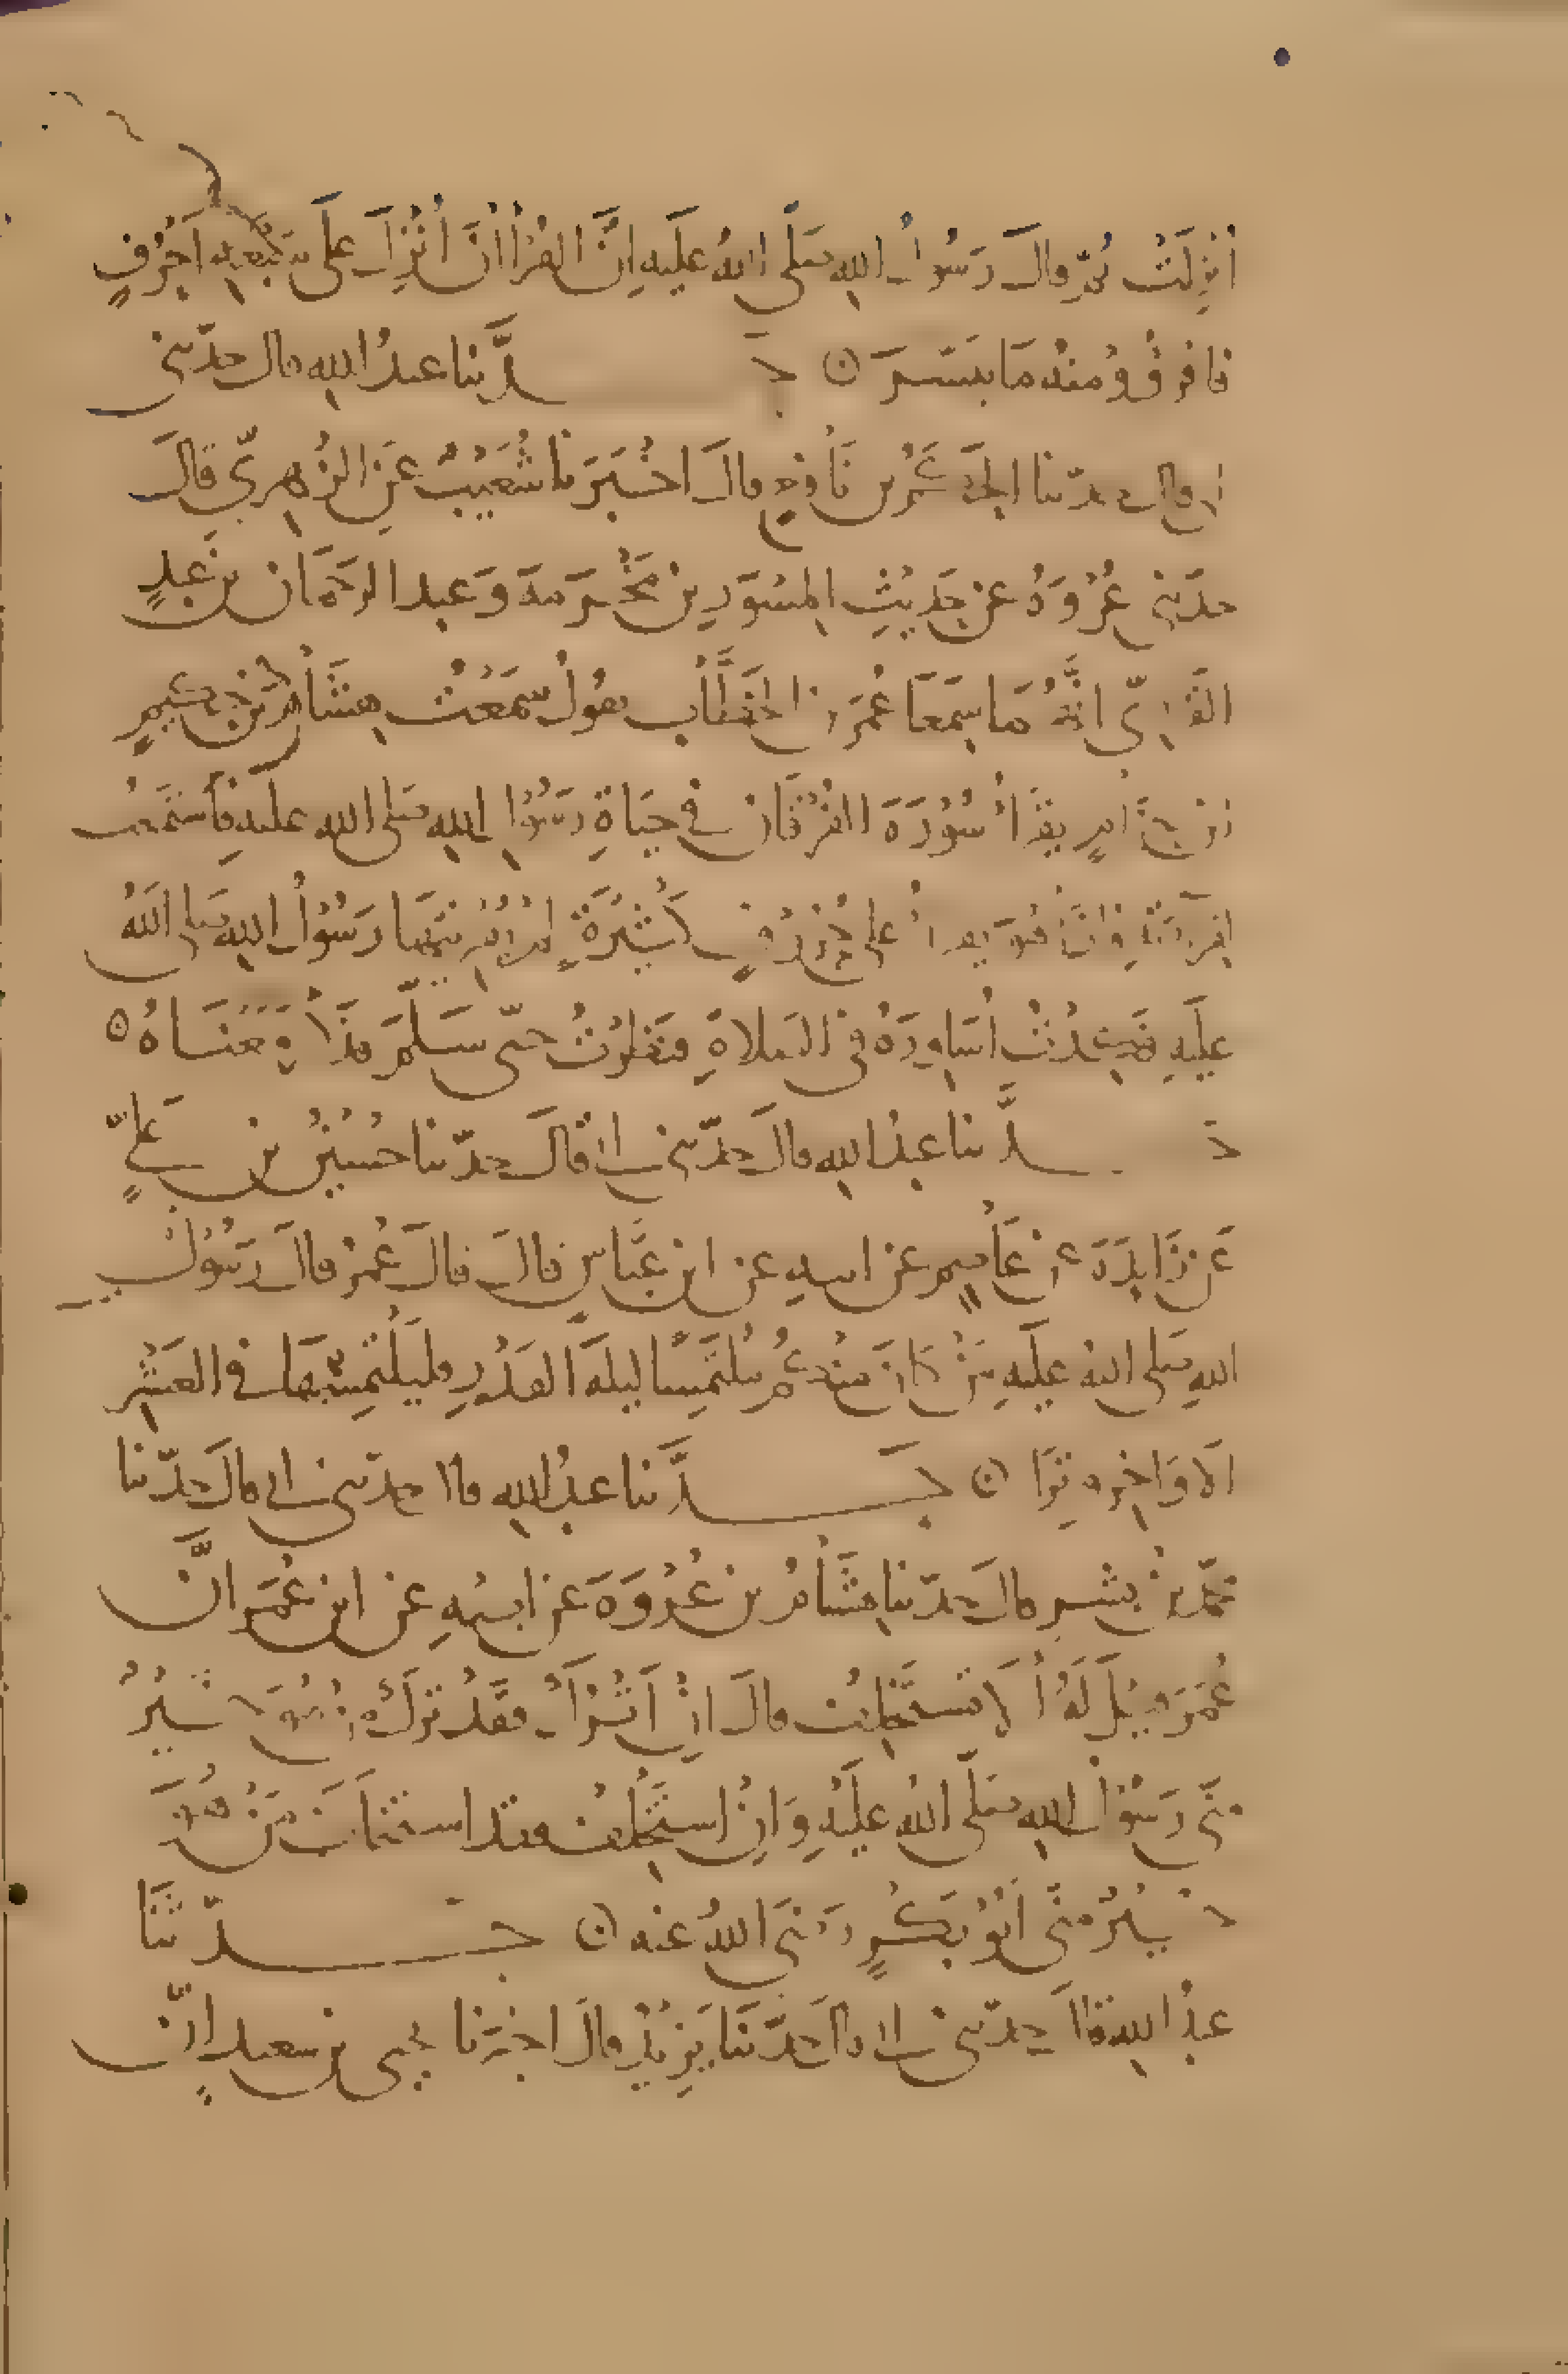 أُنْزِلَتْ ثمّ قالَ رَسُولُ اللهِ صَلَّى اللهُ عَلَيهِ إنَّ القُرْاٰنَ أُنْزِلَ عَلَى سَبْعَةِ اَحْرُفٍ
فاقرؤُوْ مِنْهُ مَا تَيَسَّرَ ۞ حَدَّثنا عبدُ اللهِ قال حدّثني
ابي قال حدّثنا الحَكَمُ بن نَافِعٍ قالَ اخْبَرَنا شُعَيْبٌ عَنِ الزُهرِيّ قالَ
حدّثني عُرْوَةُ عن حَدِيْثِ المِسْوَرِ بنِ مَخْرَمَةَ وَعبد الرَحْمَان بنِ عَبدٍ
القَارِيّ انَّهُمَا سَمِعَا عُمَرَ بن الخَطَّابِ يقولُ سَمِعْتُ هِشَامَ بْنَ حَكِيمِ
بْنِ حِزَامٍ يقرَأُ سُوْرَةَ الفُرْقَانِ في حَيَاةِ رَسُوْلِ اللهِ صَلى الله عليهِ فاَسْتَمَعْتُ
لِقِرَآءَتِهِ فَاِذَا هُوَ يقرأُ عَلى حُرُوْفٍ كَثِيْرَةٍ لَمْ يُقْرِئْنِيْهَا رَسُوْلُ اللهِ صَلى اللهُ
عليَهِ فَكِدْتُ أُسَاوِرَهُ في الصَلاةِ فنَظَرْتُ حتّى سَلَّمَ فَذَكَرَ مَعْنَاهُ ۞
حَدَّثنا عبدُ اللهِ قالَ حدّثني ابي قالَ حدّثنا حُسَيْنُ بن عَلِيٍّ
عَن زَايِدَةَ عن عَاصِمٍ عن ابيهِ عن ابن عَبّاسٍ قالَ قالَ عُمَرُ قالَ رَسُوْلُ
اللهِ صَلى اللهُ عليَهِ مَنْ كانَ مِنْكُمْ مُلْتَمِسًا ليلةَ القَدْرِ فليَلْتَمِسْهَا في العَشْرِ
الاوَاخِرِ وِتْرًا ۞ حَدَّثنا عبدُ اللهِ قال حدثني ابي قالَ حدّثنا
محمّد بنُ بِشْرٍ قالَ حدّثنا هِشَامُ بن عُرْوَةَ عن ابيْهِ عن ابن عُمَرَ انَّ
عُمَرَ قِيْلَ لَهُ أَلا تَستَخلِفُ قالَ اِنْ اَتْرُكْ فقَدْ تَرَكَ مَنْ هُوَ خَيْرٌ
مِنِّي رَسُوْلُ اللهِ صَلَّى اللهُ عليَهِ وَاِنْ استَخْلِفْ فقد استخلَفَ مَنْ هُوَ
خَيْرٌ مِنِّي اَبُوْ بَكْرٍ رَضِيَ اللهُ عنه ۞ حَدّثنَا
عبدُ اللهِ قالَ حدّثني ابي قالَ حدّثنَا يَزِيْدُ قالَ اخْبَرَنا يحيى بن سعيدٍ اَنّ